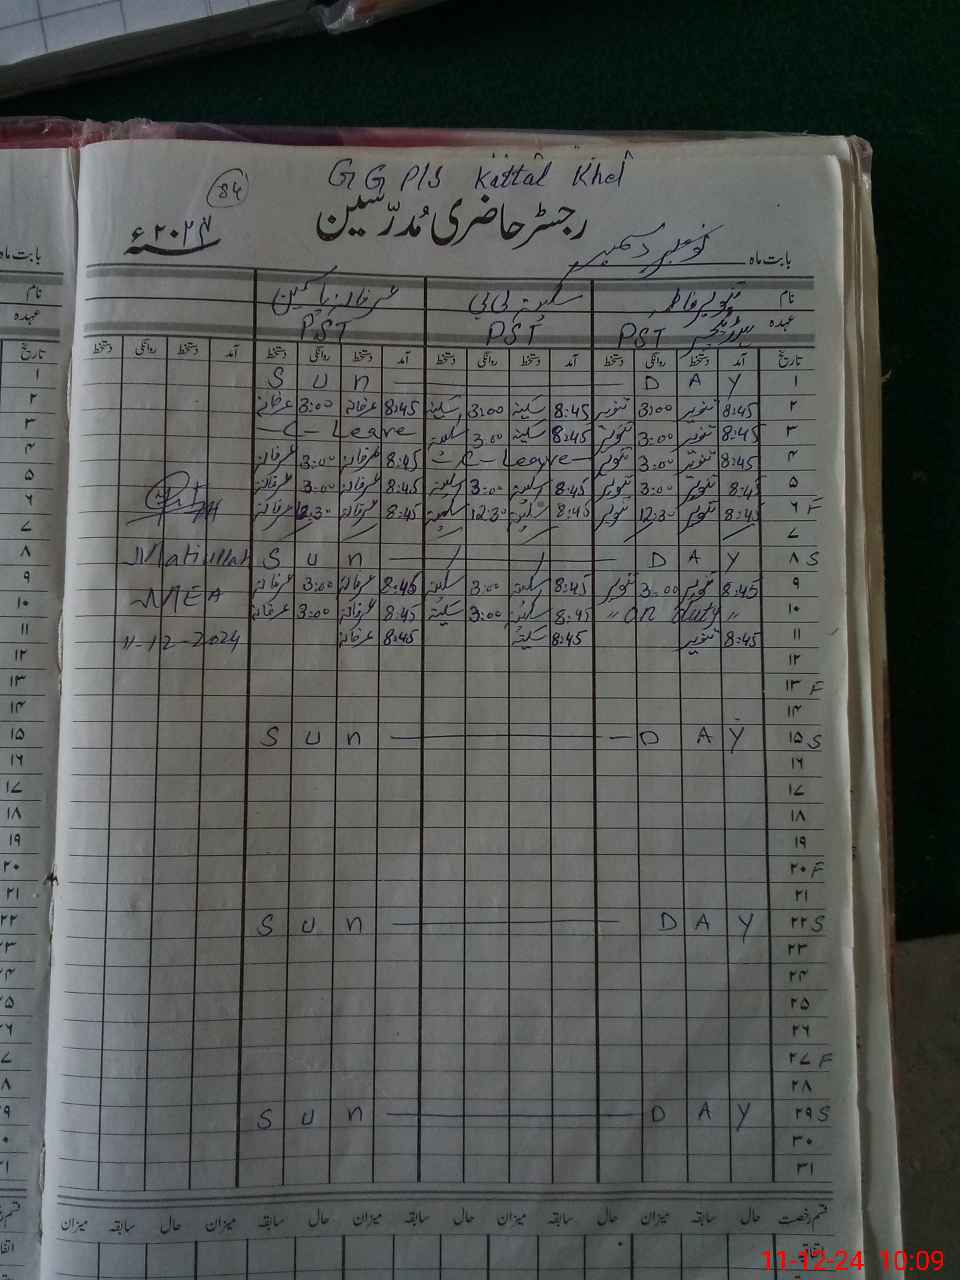 84
G G P/S Kattal Khel
رجسٹر حاضری مُدرّسین
۲۰۲۴ء
بابت ماہ دسمبر
نام سکینہ بی بی
عہدہ PST PST PST
تاریخ آمد دستخط روانگی دستخط آمد دستخط روانگی دستخط آمد دستخط روانگی دستخط آمد دستخط روانگی دستخط
۱ S U n D A Y
۲ 8:45 تنویر 3:00 تنویر 8:45 سکینہ 3:00 سکینہ 8:45 عرفانہ 3:00 عرفانہ
۳ 8:45 تنویر 3:00 تنویر 8:45 سکینہ 3:00 سکینہ C-Leave
۴ 8:45 تنویر 3:00 تنویر C-Leave 8:45 عرفانہ 3:00 عرفانہ
۵ 8:45 تنویر 3:00 تنویر 8:45 سکینہ 3:00 سکینہ 8:45 عرفانہ 3:00 عرفانہ
۶ F 8:45 تنویر 12:30 تنویر 8:45 سکینہ 12:30 سکینہ 8:45 عرفانہ 12:30 عرفانہ
۷
۸ S S U n D A Y Matiullah
۹ 8:45 تنویر 3:00 تنویر 8:45 سکینہ 3:00 سکینہ 8:45 عرفانہ 3:00 عرفانہ
MEA
۱۰ " on duty " 8:45 سکینہ 3:00 سکینہ 8:45 عرفانہ 3:00 عرفانہ
۱۱ 8:45 تنویر 8:45 سکینہ 8:45 عرفانہ 11-12-2024
۱۲
۱۳ F
۱۴
۱۵ S S U n D A Y
۱۶
۱۷
۱۸
۱۹
۲۰ F
۲۱
۲۲ S S U n D A Y
۲۳
۲۴
۲۵
۲۶
۲۷ F
۲۸
۲۹ S S U n D A Y
۳۰
۳۱
قسم رخصت حال سابقہ میزان حال سابقہ میزان حال سابقہ میزان حال سابقہ میزان
11-12-24 10:09